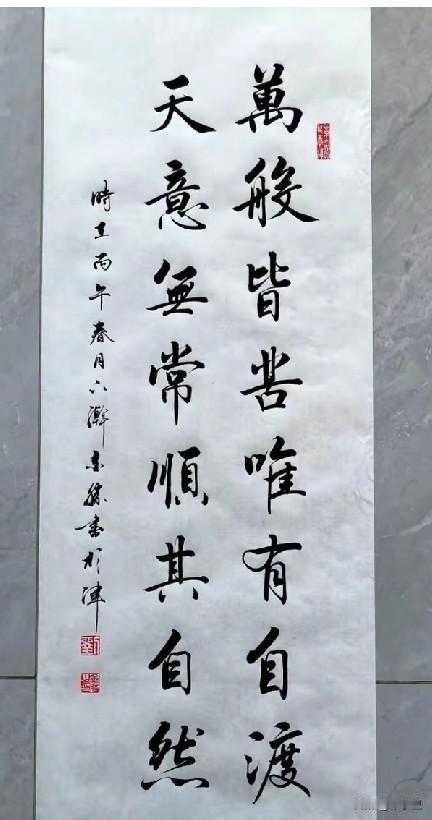 萬般皆苦唯有自渡
天意無常順其自然
時在丙午春月六
書於津